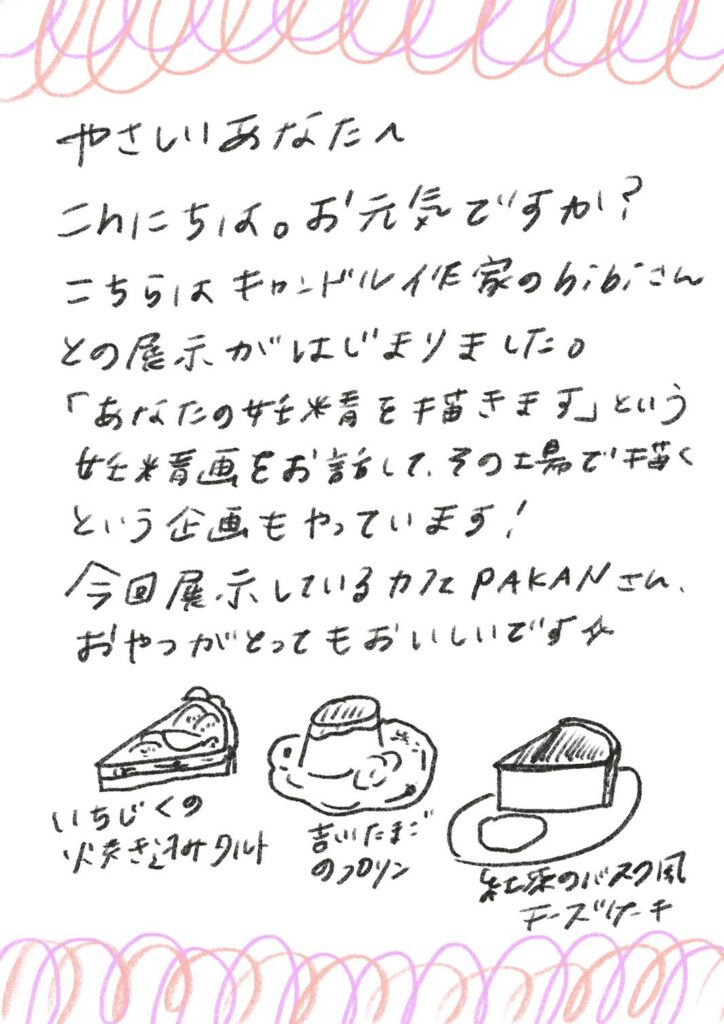 やさしいあなたへ
こんにちは。お元気ですか？
こちらはキャンドル作家のhibiさん
との展示がはじまりました。
「あなたの妖精を描きます」という
妖精画をお話して、その場で描く
という企画もやっています！
今回展示しているカフェPAKANさん、
おやつがとってもおいしいです☆
いちじくの
焼き込みタルト
吉川たまご
のプリン
紅茶のバスク風
チーズケーキ